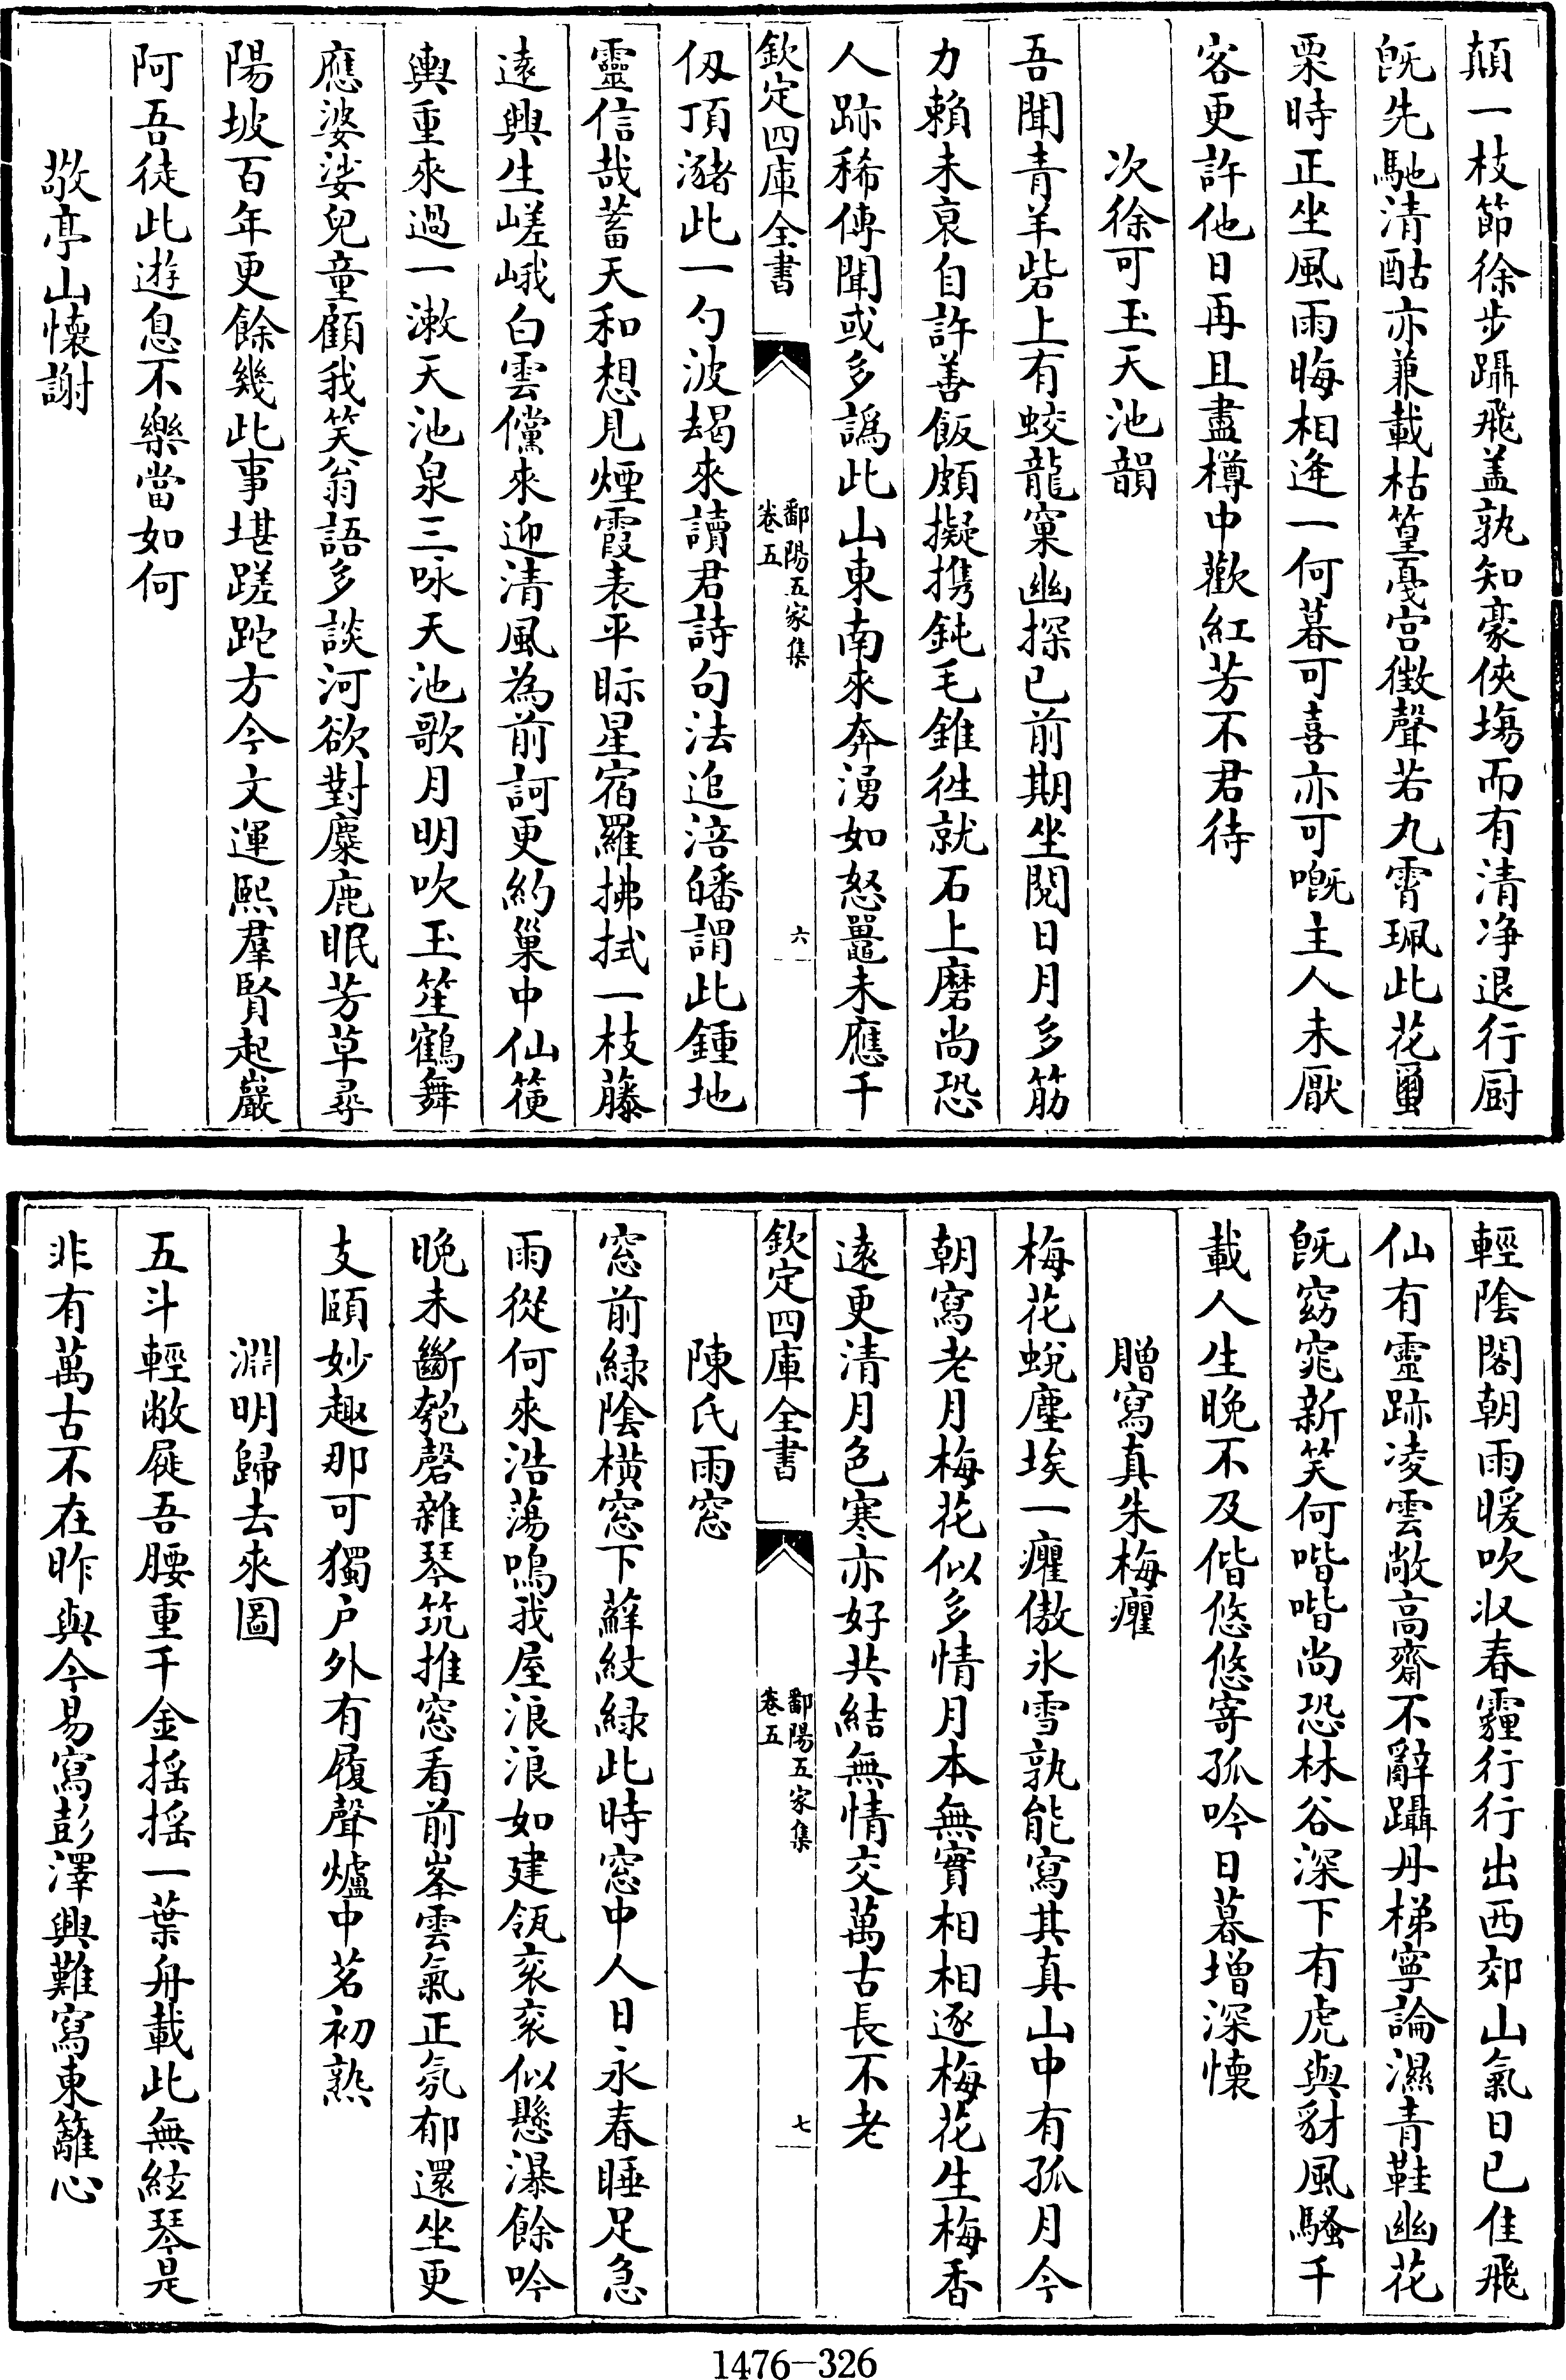 顛一枝節徐步躡飛盖孰知豪俠塲而有清净退行厨
旣先馳清酤亦兼載枯篁戛宫徴聲若九霄珮此花𤓰
栗時正坐風雨晦相逄一何暮可喜亦可嘅主人未厭
客更許他日再且盡樽中歡紅芳不君待
次徐可玉天池韻
吾聞青羊砦上有蛟龍窠幽探已前期坐閱日月多筋
力頼未衰自許善飯頗擬携鈍毛錐徃就石上磨尚恐
人跡稀傳聞或多譌此山東南來奔湧如怒鼉未應千
欽定四庫全書
鄱陽五家集
卷五
六
仭頂瀦此一勺波朅來讀君詩句法追涪皤謂此鍾地
靈信哉蓄天和想見煙霞表平眎星宿羅拂拭一枝藤
逺興生嵯峨白雲儻來迎清風為前訶更約巢中仙䇦
輿重來過一漱天池泉三咏天池歌月明吹玉笙鶴舞
應婆娑兒童顧我笑翁語多談河欲對麋鹿眠芳草尋
陽坡百年更餘幾此事堪蹉跎方今文運熙羣賢起巖
阿吾徒此遊息不樂當如何
敬亭山懷謝
輕隂閣朝雨暖吹収春霾行行出西郊山氣日已佳飛
仙有靈跡凌雲敞高齋不辭躡丹梯寧論濕青鞋幽花
旣窈窕新笑何喈喈尚恐林谷深下有虎與豺風騷千
載人生晚不及偕悠悠寄孤吟日暮増深懷
贈寫真朱梅癯
梅花蛻塵埃一癯傲氷雪孰能寫其真山中有孤月今
朝寫老月梅花似多情月本無實相相逐梅花生梅香
逺更清月色寒亦好共結無情交萬古長不老
欽定四庫全書
鄱陽五家集
卷五
七
陳氏雨窓
窓前緑隂横窓下蘚紋緑此時窓中人日永春睡足急
雨從何來浩蕩鳴我屋浪浪如建瓴衮衮似懸瀑餘吟
晚未斷匏磬雜琴筑推窓看前峯雲氣正氛郁還坐更
支頤妙趣那可獨户外有履聲爐中茗初熟
淵明歸去來圖
五斗輕敝屣吾腰重千金揺揺一葉舟載此無絃琴是
非有萬古不在昨與今易寫彭澤興難寫東籬心
1476-326